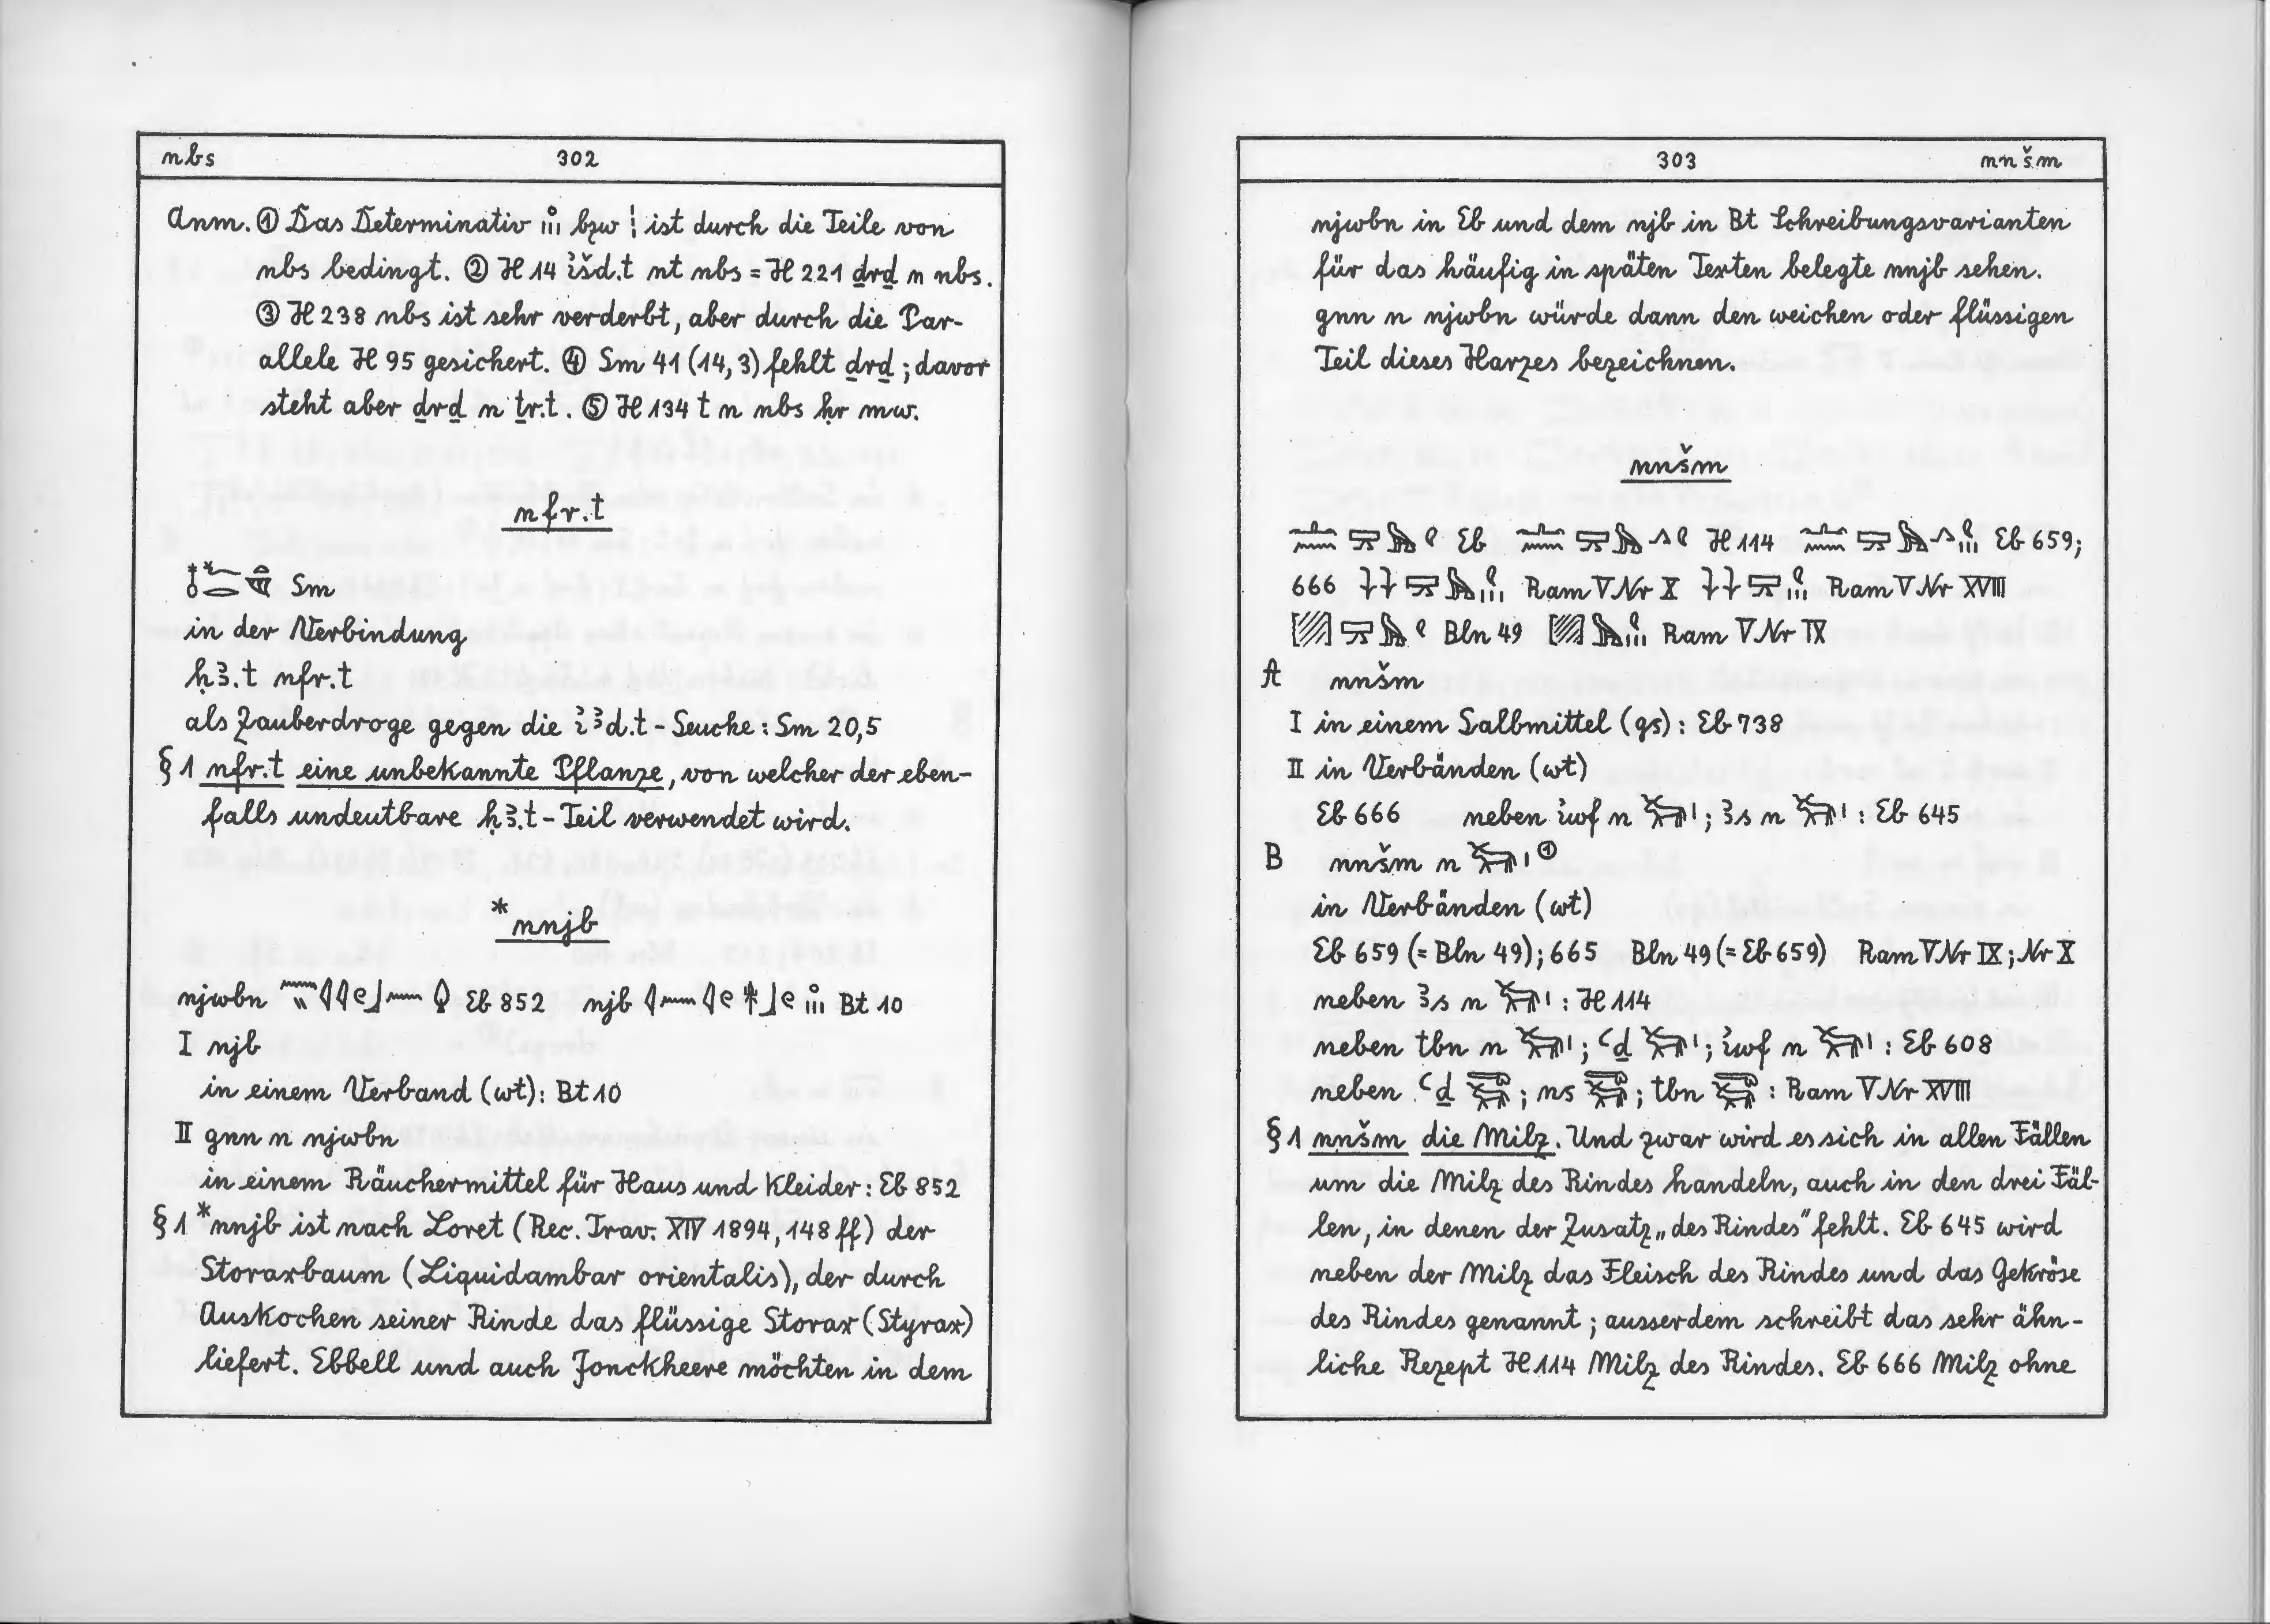 nbs 302
Anm. ① Das Determinativ bzw ist durch die Teile von
nbs bedingt. ② H 14 ı͗šd.t nt nbs = H 221 ḏrḏ n nbs.
③ H 238 nbs ist sehr verderbt, aber durch die Par-
allele H 95 gesichert. ④ Sm 41 (14,3) fehlt ḏrḏ; davor
steht aber ḏrḏ n ṯr.t. ⑤ H 134 t n nbs ḥr mw.
nfr.t
Sm
in der Verbindung
ḥꜣ.t nfr.t
als Zauberdroge gegen die ı͗ꜣd.t - Seuche: Sm 20,5
§ 1 nfr.t eine unbekannte Pflanze, von welcher der eben-
falls undeutbare ḥꜣ.t - Teil verwendet wird.
*nnjb
njwbn Eb 852 njb Bt 10
I njb
in einem Verband (wt): Bt 10
II gnn n njwbn
in einem Räuchermittel für Haus und Kleider: Eb 852
§ 1 *nnjb ist nach Loret (Rec. Trav. XIV 1894, 148 ff) der
Storaxbaum (Liquidambar orientalis), der durch
Auskochen seiner Rinde das flüssige Storax (Styrax)
liefert. Ebbell und auch Jonckheere möchten in dem
303 nnšm
njwbn in Eb und dem njb in Bt Schreibungsvarianten
für das häufig in späten Texten belegte nnjb sehen.
gnn n njwbn würde dann den weichen oder flüssigen
Teil dieses Harzes bezeichnen.
nnšm
Eb H 114 Eb 659;
666 Ram V Nr X Ram V Nr XVIII
Bln 49 Ram V Nr IX
A nnšm
I in einem Salbmittel (gs): Eb 738
II in Verbänden (wt)
Eb 666 neben ı͗wf n ; ꜣs n : Eb 645
B nnšm n ①
in Verbänden (wt)
Eb 659 (= Bln 49); 665 Bln 49 (= Eb 659) Ram V Nr IX; Nr X
neben ꜣs n : H 114
neben tbn n ; ꜥḏ ; ı͗wf n : Eb 608
neben ꜥḏ ; ns ; tbn : Ram V Nr XVIII
§ 1 nnšm die Milz. Und zwar wird es sich in allen Fällen
um die Milz des Rindes handeln, auch in den drei Fäl-
len, in denen der Zusatz „des Rindes" fehlt. Eb 645 wird
neben der Milz das Fleisch des Rindes und das Gekröse
des Rindes genannt; ausserdem schreibt das sehr ähn-
liche Rezept H 114 Milz des Rindes. Eb 666 Milz ohne